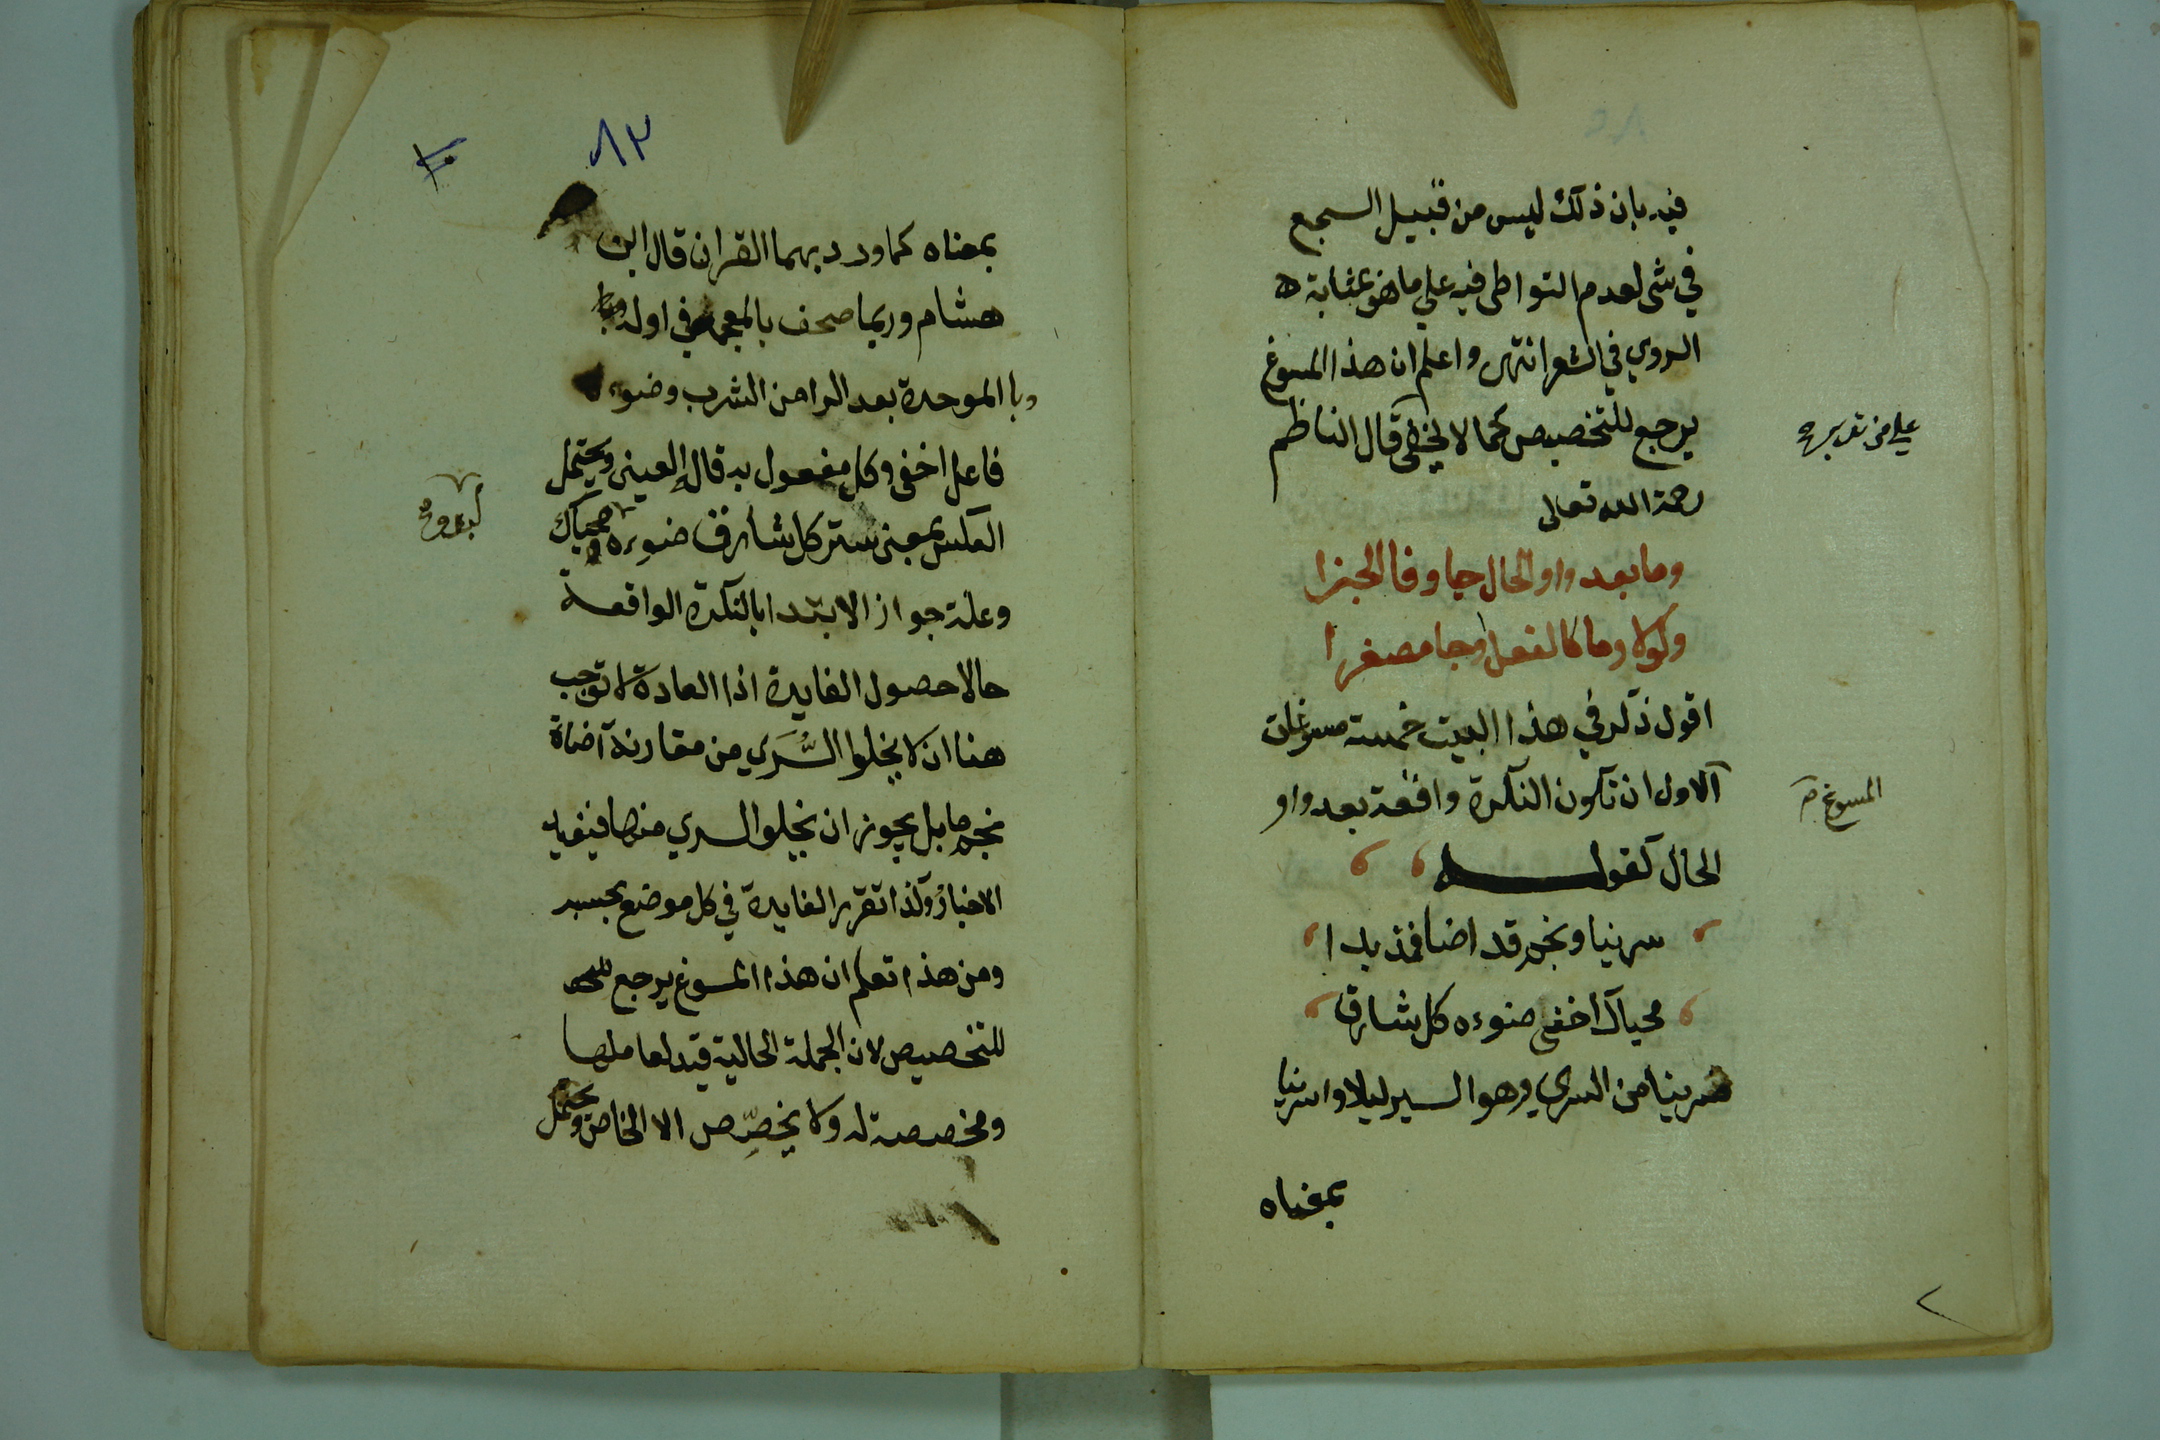 فيه بان ذلك ليس من قبيل السجع
في شي لعدم التواطي فيه علي ما هو بمثابة
الروي في الشعر انتهى واعلم ان هذا المسوغ
يرجع للتخصيص كما لا يخفى قال الناظم
رحمة الله تعالى
وما بعد واو الحال جيا وفا الجزا
ولولا وما كالفعل اوجا مصغرا
اقول ذكر في هذا البيت خمسة مسوغات
الاول ان تكون النكرة واقعة بعد واو
الحال كقوله
سرينا ونجم قد اضا فمذ بدا
محياك اخفى ضوءه كل شارق
سرينا من السري وهو السير ليلا واسرينا
بمعناه
علي من تدبره
المسوغ
٨٢
بمعناه كما ورد بهما القران قال ابن
هشام وربما صحف بالمعجمة في اوله
وبا الموحدة بعد الرا من الشرب وضوء
فاعل اخفى وكل مفعول به قال العيني ويحتمل
العكس بمعنى ستر كل شارق ضوءه ومحياك
وعلة جواز الابتدا بالنكرة الواقعة
حالا حصول الفايدة اذا العادة لا توجب
هنا ان لا يخلوا السُّرَي من مقارنة اضاة
نجم ما بل يجوز ان يخلوا السري منها فيفيد
الاخبار وكذا تقرر الفايدة في كل موضع بحسبه
ومن هذا تعلم ان هذا المسوغ يرجع
للتخصيص لان الجملة الحالية قيد لعاملها
ومخصصة له ولا يخصّص الا الخاص ويحتمل